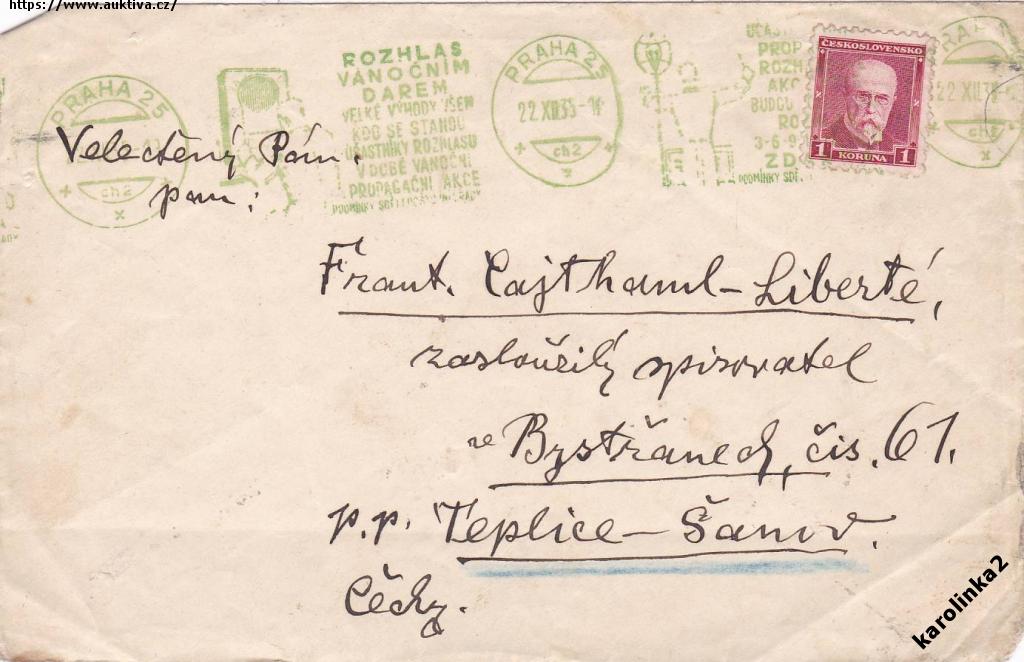 https://www.auktiva.cz/
PRAHA 25
ch2
x
ROZHLAS
VÁNOČNÍM
DAREM
VELKÉ VÝHODY VŠEM
KDO SE STANOU
ÚČASTNÍKY ROZHLASU
V DOBĚ VÁNOČNÍ
PROPAGAČNÍ AKCE
PODMÍNKY SDĚLÍ
PRAHA 25
22 XII 35
ch2
x
PROP
ROZH
AKC
BUDOU
RO
3-6-9
ZD
PODMÍNKY SDĚ
ČESKOSLOVENSKO
1 KORUNA 1
22 XII 3
x
Velectěný Pán.
pan:
Frant. Cajthaml-Liberté,
zasloužilý spisovatel
ve Bystřanech, čis. 61.
p.p. Teplice-Šanov.
Čechy.
karolinka2